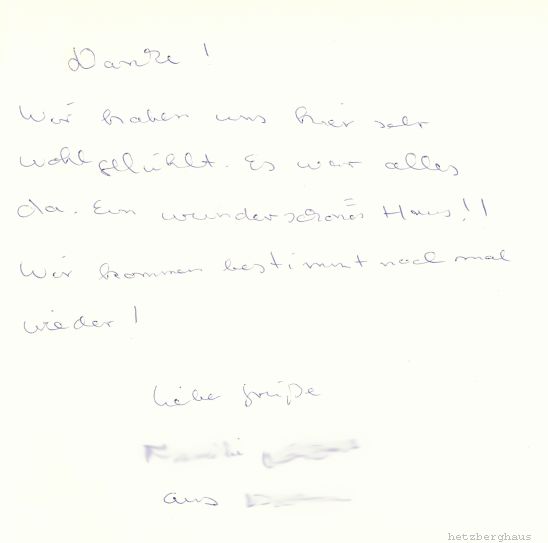 Danke!
Wir haben uns hier sehr
wohlgefühlt. Es war alles
da. Ein wunderschönes Haus!!
Wir kommen bestimmt noch mal
wieder!
Liebe Grüße
Familie
aus
hetzberghaus